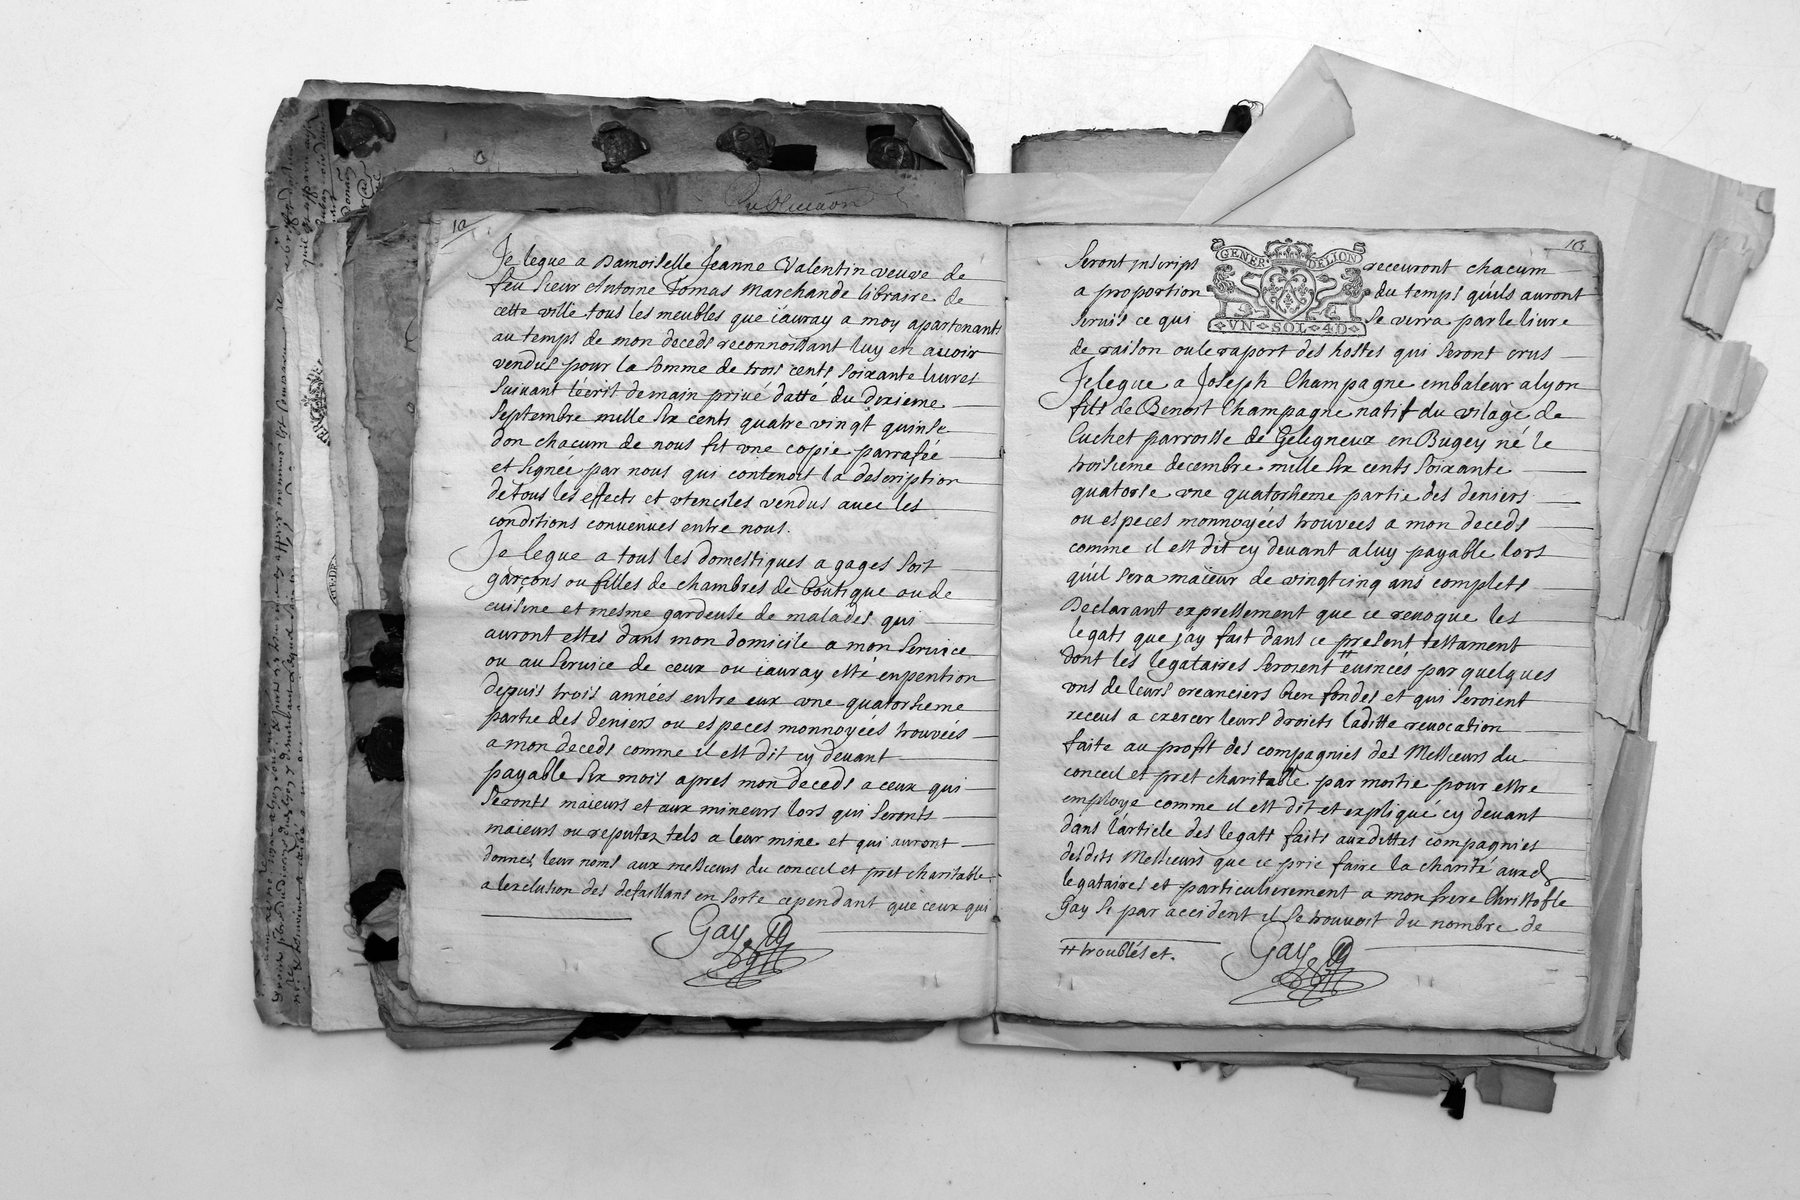 10
Je legue a Damoiselle Jeanne Valentin veuve de
feu sieur Antoine Tomas Marchande libraire de
cette ville tous les meubles que iauray a moy apartenants
au temps de mon deceds reconnoissant luy en auoir
vendus pour la somme de trois cents soixante liures
suiuant l'écrit de main privé datté du dixieme
septembre mille six cents quatre vingt quinse
don chacum de nous fit vne copie parrafée
et signée par nous qui contenoit la description
de tous les effects et vtenciles vendus auec les
conditions conuenues entre nous.
Je legue a tous les domestiques a gages soit
garçons ou filles de chambres de boutique ou de
cuisine et mesme gardeuse de malades qui
auront estes dans mon domicile a mon seruice
ou au seruice de ceux ou iauray esté en pention
depuis trois années entre eux vne quatorsieme
partie des deniers ou especes monnoyées trouvées
a mon deceds comme il est dit cy deuant
payable six mois apres mon deceds a ceux qui
seronts maieurs et aux mineurs lors qui seronts
maieurs ou reputez tels a leur mine et qui auront
donnez leur noms aux messieurs du conceil et pret charitable
a lexclusion des defaillans en sorte cependant que ceux qui
Gay
seront inscripts
GENER DELION
receuront chacum
a proportion
du temps quils auront
seruis ce qui
VN SOL 4D
se verra par le liure
de raison ou le raport des hostes qui seront crus
Je legue a Joseph Champagne embaleur a lyon
fils de Benoit Champagne natif du vilage de
Cuchet parroisse de Geligneux en Bugey né le
troisieme decembre mille six cents soixante
quatorse vne quatorsieme partie des deniers
ou especes monnoyées trouvees a mon deceds
comme il est dit cy deuant a luy payable lors
quil sera maieur de vingt cinq ans complets
Declarant expressement que ie reuoque les
legats que jay fait dans ce present testament
dont les legataires seroient # euincés par quelques
vns de leurs creanciers bien fondes et qui seroient
receus a exercer leurs droicts laditte reuocation
faite au profit des compagnies des Messieurs du
conceil et pret charitable par moitie pour estre
employé comme il est dit et expliqué cy deuant
dans l'article des legats faits aux dittes compagnies
desdits Messieurs que ie prie faire la charité auxd
legataires et particulierement a mon frere Christofle
Gay si par accident il se trouuoit du nombre de
# troublés et.
Gay